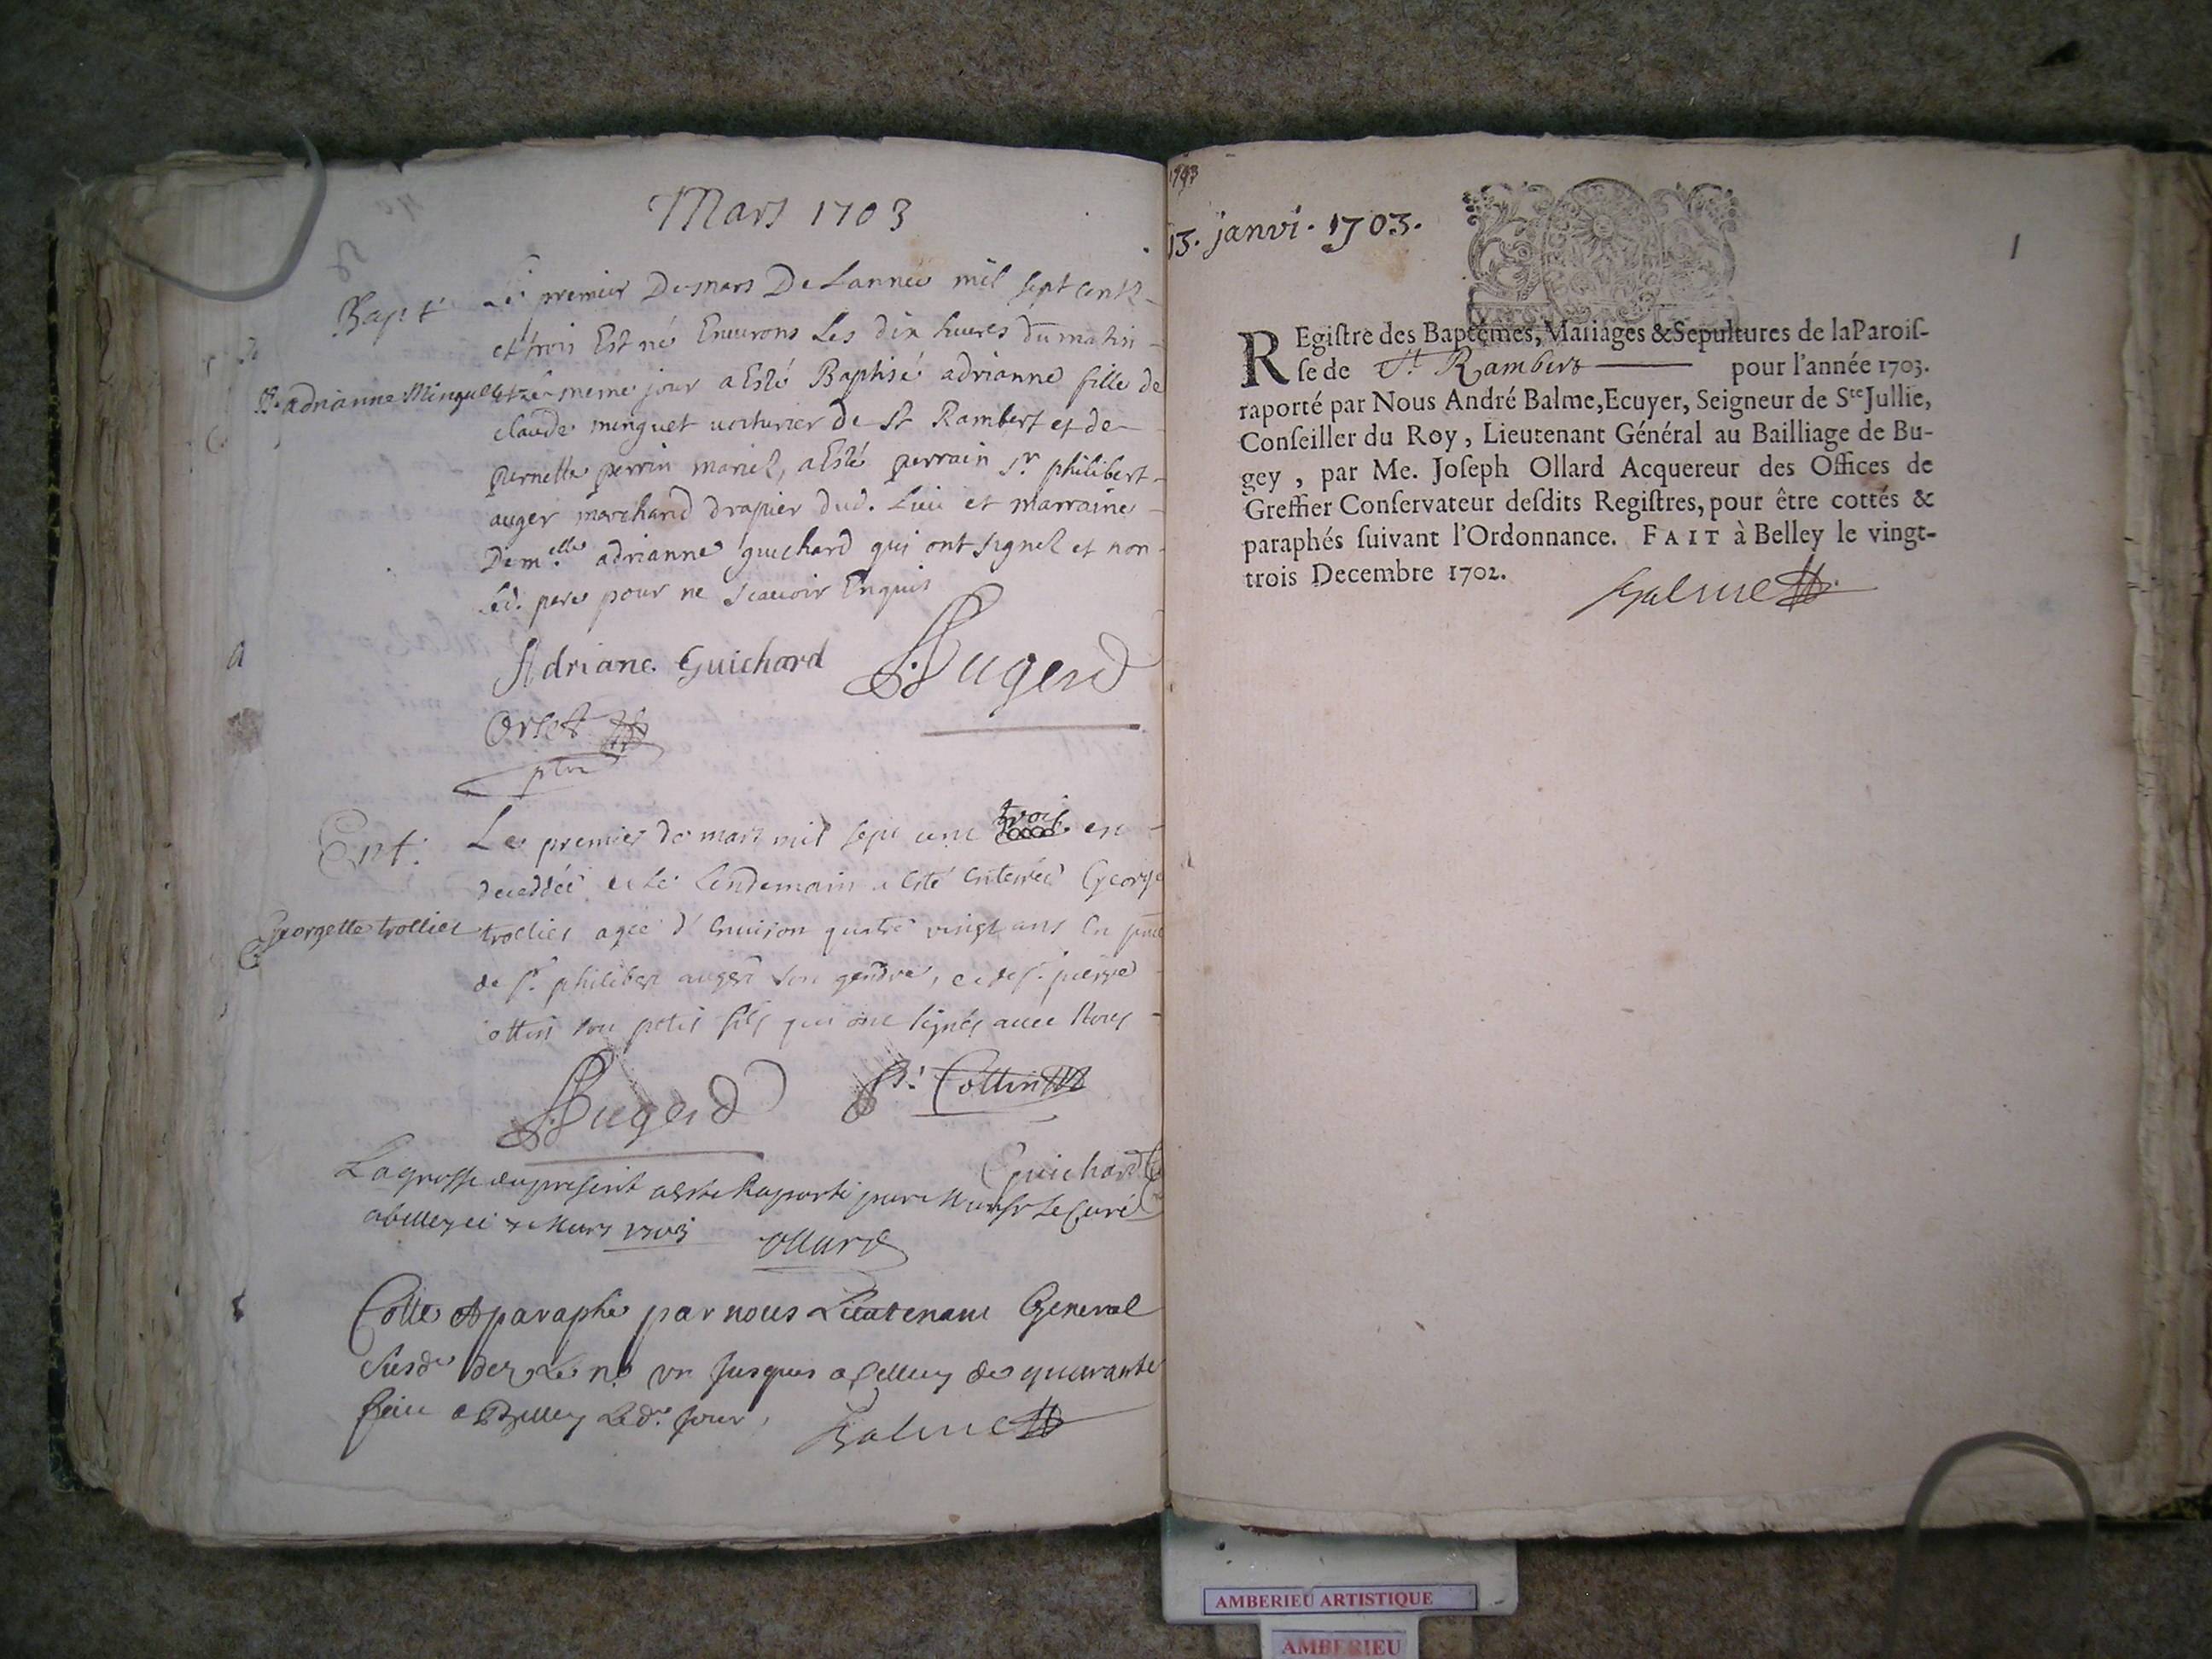 Mars 1703
Bapt
Le premier De mars De Lannée mil sept cents
et trois Est né Enuirons Les dix heures du matin
B. adrianne Minguet
et le meme jour a Esté Baptisé adrianne fille de
claude minguet voiturier de St Rambert et de
pernette perrin mariez, a Esté parrain Sr philibert
auger marchand drapier dud. Lieu et marraine
Demelle adrianne guichard qui ont signez et non
led. pere pour ne scauoir Enquis
Adriane Guichard Augerd
Orset
ptre
Ent.
Le premier de mars mil sept cent trois est
decedée et Le Lendemain a esté enterrée George
Georgette trollier
trollier agée d'enuiron quatre vingt ans En
de Sr philibert auger son gendre, et de Sr pierre
Cottin son petit fils qui ont signés auec Nous
Augerd P. Cottin
Guichard
La grosse du present a esté Raporté par Monsr Le Curé
a belley ce Mars 1703 Ollard
Cotte et paraphé par nous Lieutenant General
susd. Le no un jusques a celluy de quarante
fait a Belley Led. jour Balme
1703
13. janvi. 1703.
1
REgistre des Baptêmes, Mariages & Sepultures de la Parois-
se de St. Rambert pour l'année 1703.
raporté par Nous André Balme, Ecuyer, Seigneur de Ste Jullie,
Conseiller du Roy, Lieutenant Général au Bailliage de Bu-
gey, par Me. Joseph Ollard Acquereur des Offices de
Greffier Conservateur desdits Registres, pour être cottés &
paraphés suivant l'Ordonnance. FAIT à Belley le vingt-
trois Decembre 1702.
Balme
AMBERIEU ARTISTIQUE
AMBERIEU